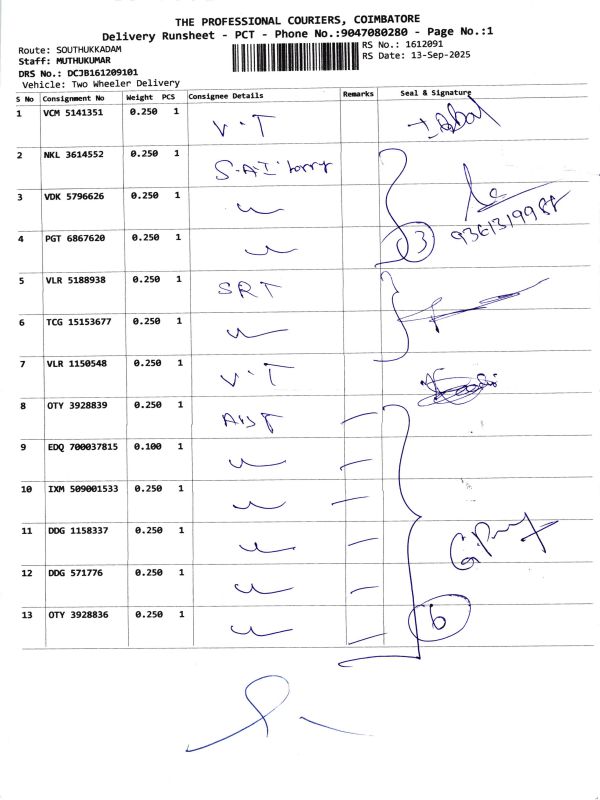 THE PROFESSIONAL COURIERS, COIMBATORE
Delivery Runsheet - PCT - Phone No.:9047080280 - Page No.:1
Route: SOUTHUKKADAM
RS No.: 1612091
Staff: MUTHUKUMAR
RS Date: 13-Sep-2025
DRS No.: DCJB161209101
Vehicle: Two Wheeler Delivery
S No Consignment No Weight PCS Consignee Details Remarks Seal & Signature
1 VCM 5141351 0.250 1 V.T
2 NKL 3614552 0.250 1 S.A.I lorry
3 VDK 5796626 0.250 1
4 PGT 6867620 0.250 1 3 9361319988
5 VLR 5188938 0.250 1 SRT
6 TCG 15153677 0.250 1
7 VLR 1150548 0.250 1 V.T
8 OTY 3928839 0.250 1
9 EDQ 700037815 0.100 1
10 IXM 509001533 0.250 1
11 DDG 1158337 0.250 1
12 DDG 571776 0.250 1
13 OTY 3928836 0.250 1 6